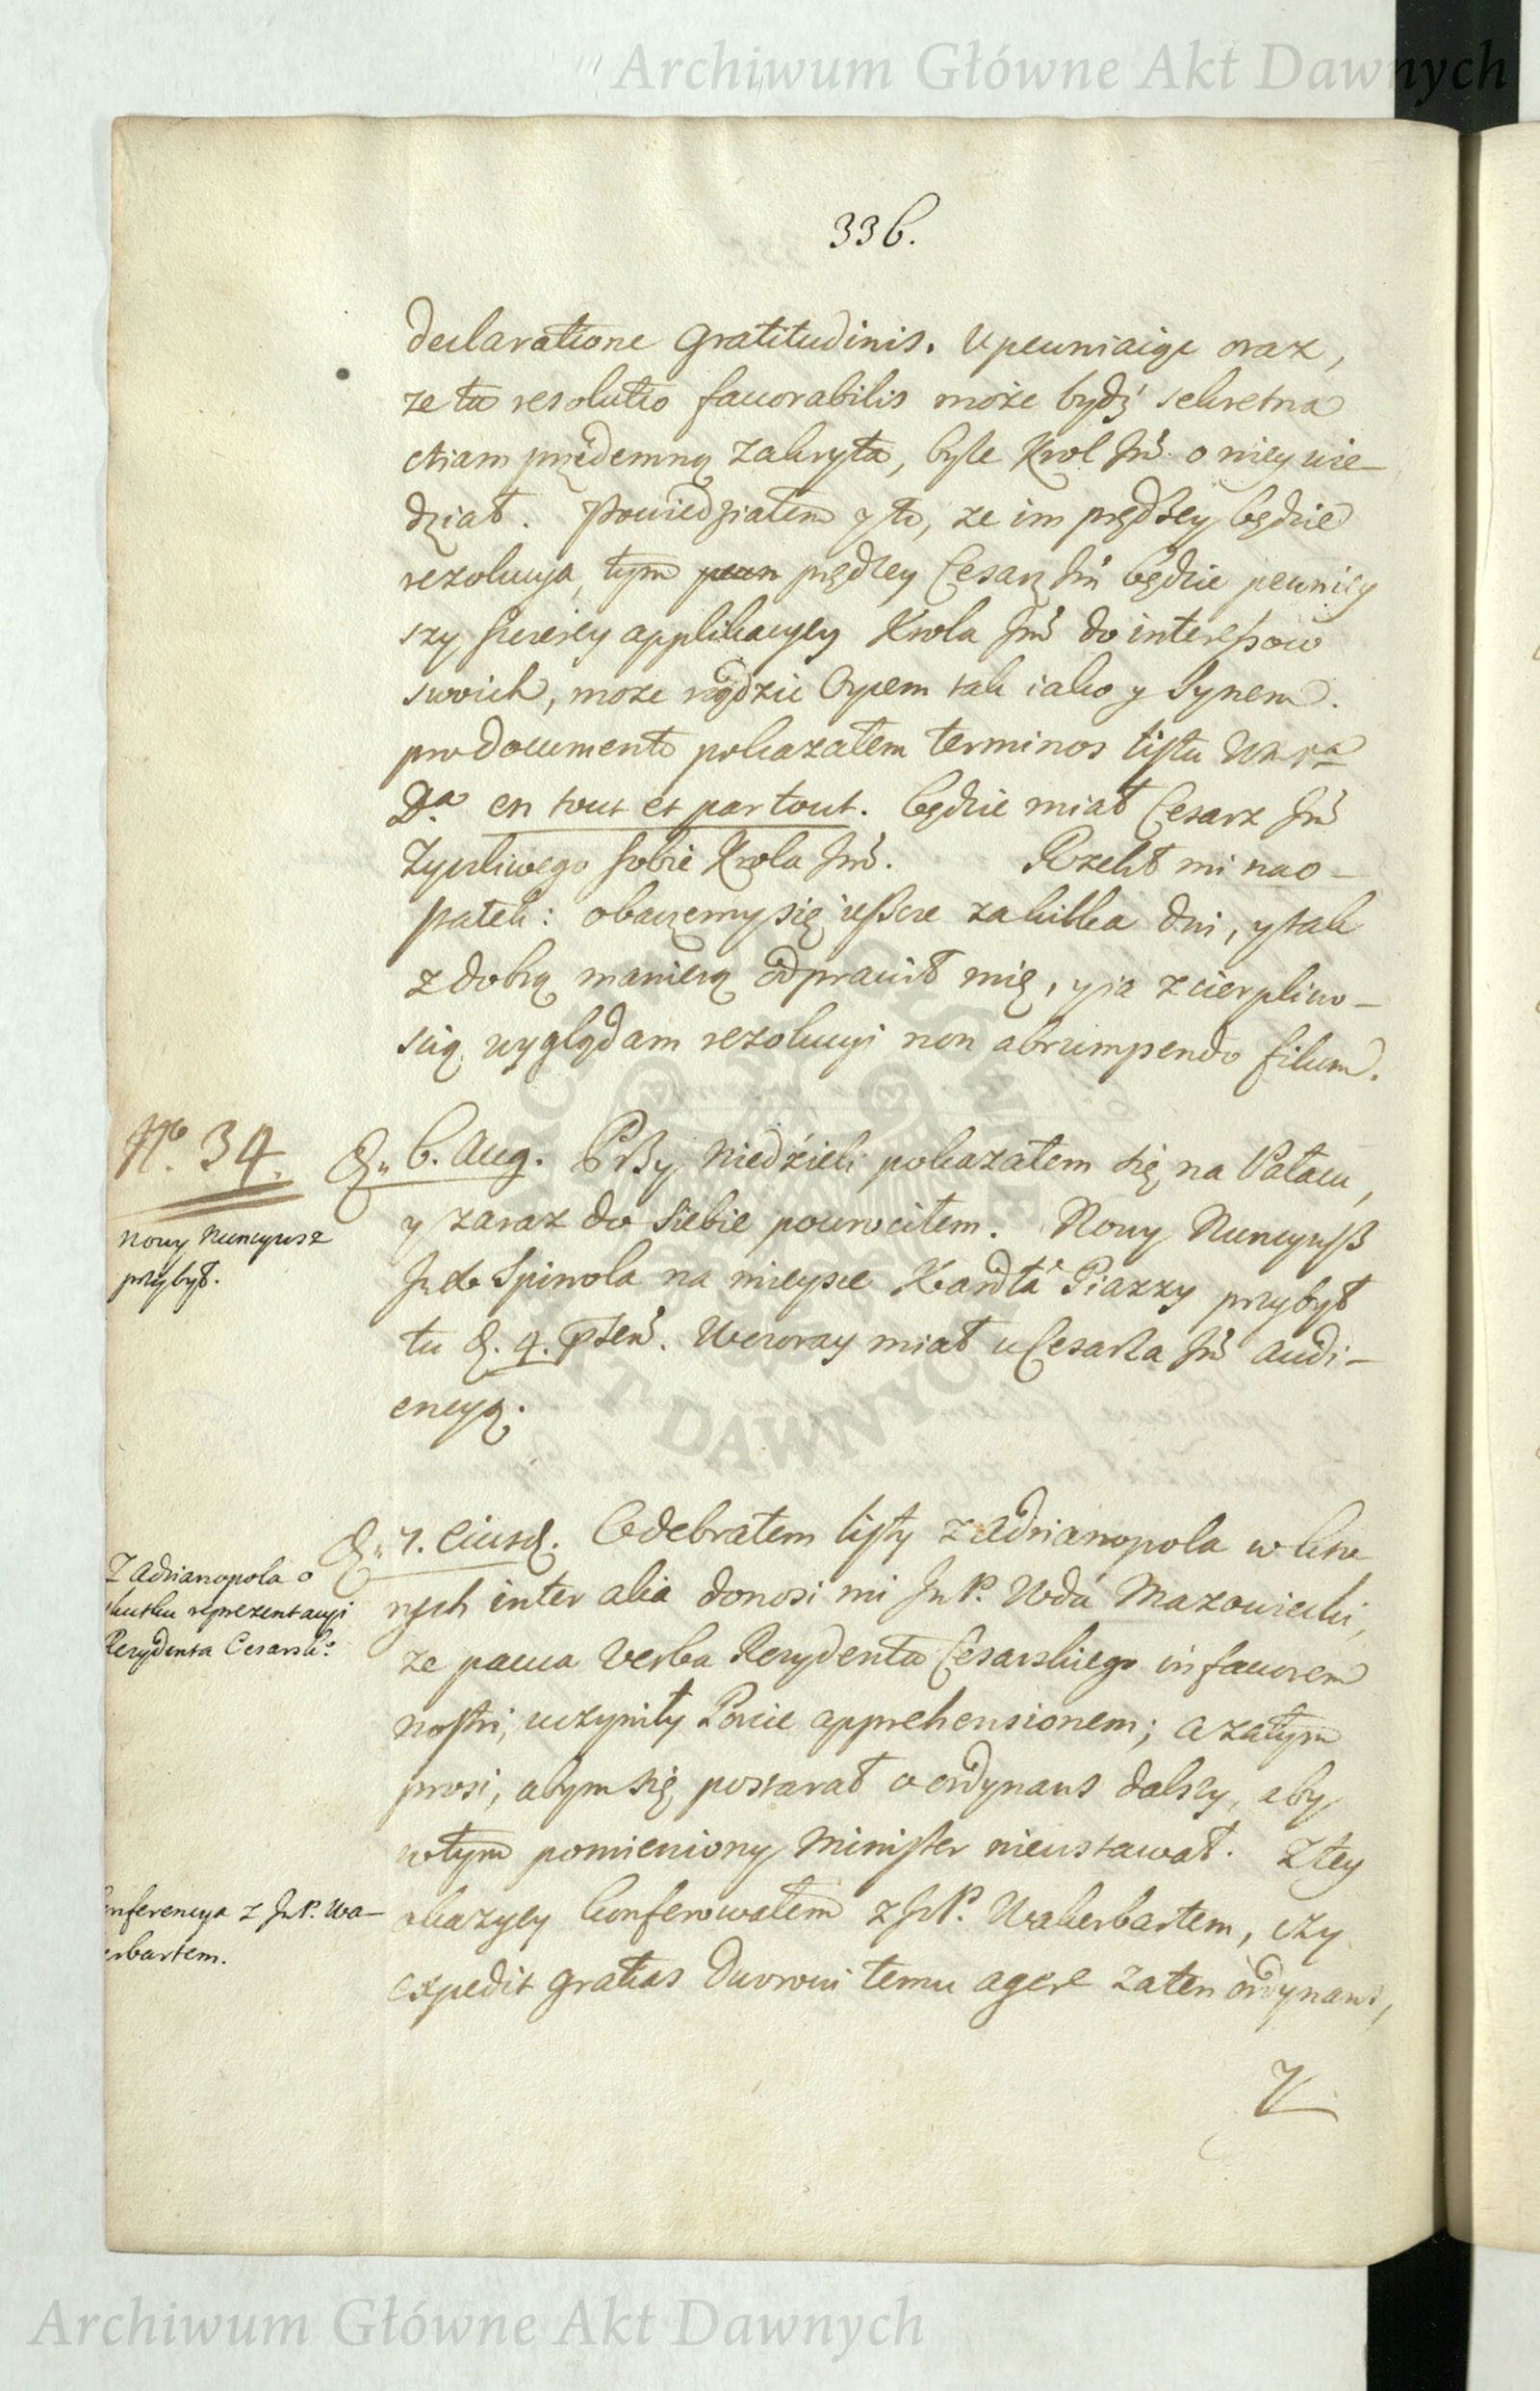 Archiwum Główne Akt Dawnych
336.
declaratione gratitudinis. Upewniaiąc oraz,
ze ta resolutio favorabilis może bydź sekretna
etiam przedemną zakryta, byle Krol Jm̃ o niey wie-
dział. Powiedziałem y to, ze im prędzey będzie
rezolucya, tym pewn prędzey Cesarz Jm̃ będzie pewniey
szy szczerey applikacyey Krola Jm̃ do interessow
swoich, moze rządzic Oycem tak iako y Synem.
pro documento pokazałem terminos listu
Da en tout et partout. będzie miał Cesarz Jm̃
Zyczliwego sobie Krola Jm̃. Rzekł mi nao-
statek: obaczemy się ieszcze za kilka dni, y tak
z dobrą manierą odprawił mię, y ia z cierpliwo-
scią wyglądam rezolucyi non abrumpendo filum.
No. 34.
D. 6. Aug. Przy Niedzieli pokazałem się na Pałacu,
y zaraz do siebie powrociłem. Nowy Nuncyusz
Nowy Nuncyusz
przybył.
Jm de Spinola na mieysce Kardła Piazzy przybył
tu d. 4. pſen̄. Wczoray miał u Cesarza Jm̃ audi-
encyą.
D. 7. Eiusd. Odebrałem listy z Adrianopola w kto
Z Adrianopola o
skutku reprezentacyi
Rezydenta Cesarsko
rych inter alia donosi mi Jm P. Wda Mazowiecki,
ze pauca verba Rezydenta Cesarskiego in favorem
nostri, uczyniły Porcie apprehensionem; a zatym
prosi, abym się postarał o ordynans dalszy, aby
w tym pomieniony Minister nieustawał. Z tey
onferencya z Jm P. Wa-
erbartem.
okazyey konferowałem z Jm P. Wakerbartem, czy
expedit gratias Dworowi temu agere za ten ordynans,
Archiwum Główne Akt Dawnych